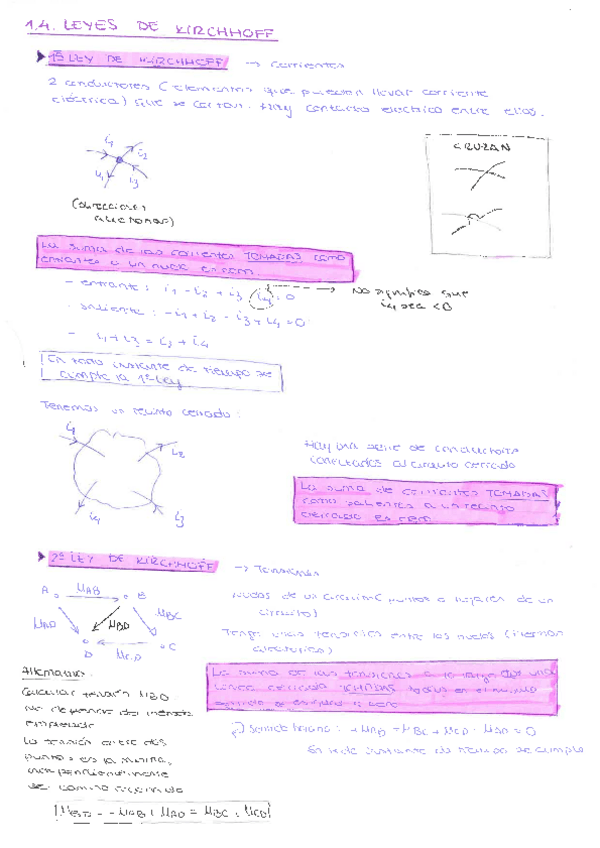 1.4. LEYES DE KIRCHHOFF
1ª LEY DE KIRCHHOFF → corrientes
2 conductores (elementos que pueden llevar corriente
eléctrica) que se cortan. Hay contacto eléctrico entre ellos.
i1 i2
i4 i3
(direcciones
aleatorias)
CRUZAN
La suma de las corrientes TOMADAS como
entrantes a un nudo es cero.
- entrante: i1 - i2 + i3 - i4 = 0
No significa que
i4 sea < 0
- saliente: -i1 + i2 - i3 + i4 = 0
- i1 + i3 = i2 + i4
En todo instante de tiempo se
cumple la 1ª Ley
Tenemos un recinto cerrado:
i1
i2
i4
i3
Hay una serie de conductores
conectados al circuito cerrado
La suma de corrientes TOMADAS
como salientes a un recinto
cerrado es cero
2ª LEY DE KIRCHHOFF → Tensiones
A B
C
D
UAB
UBC
UAD
UBD
UCD
Nudos de un circuito (puntos o lugares de un
circuito)
Tengo unas tensiones entre los nudos
La suma de las tensiones a lo largo de una
línea cerrada TOMADAS todas en el mismo
sentido es cero
Sentido horario: UAB + UBC + UCD - UAD = 0
En todo instante de tiempo se cumple
Calcular tensión UBD
no depende del método
empleado
La tensión entre dos
puntos es la misma,
independientemente
del camino recorrido
UBD = -UAB + UAD = UBC + UCD